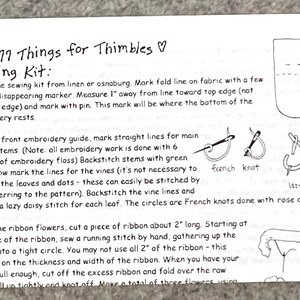 77 Things for Thimbles ♡
ng Kit:
e sewing kit from linen or osnaburg. Mark fold line on fabric with a few
disappearing marker. Measure 1" away from line toward top edge (not
edge) and mark with pin. This mark will be where the bottom of the
ery rests.
front embroidery guide, mark straight lines for main
tems. (Note: all embroidery work is done with 6
of embroidery floss) Backstitch stems with green
ow mark the lines for the vines (it's not necessary to
the leaves and dots - these can easily be stitched by
erring to the pattern). Backstitch the vine lines and
a lazy daisy stitch for each leaf. The circles are French knots done with rose c
french knot
laz
he ribbon flowers, cut a piece of ribbon about 2" long. Starting at
e of the ribbon, sew a running stitch by hand, gathering up the
nto a tight circle. You may not use all 2" of the ribbon - this
on the thickness and width of the ribbon. When you have your
ull enough, cut off the excess ribbon and fold over the raw
ll up tightly and knot off. Make a total of three flowers, using